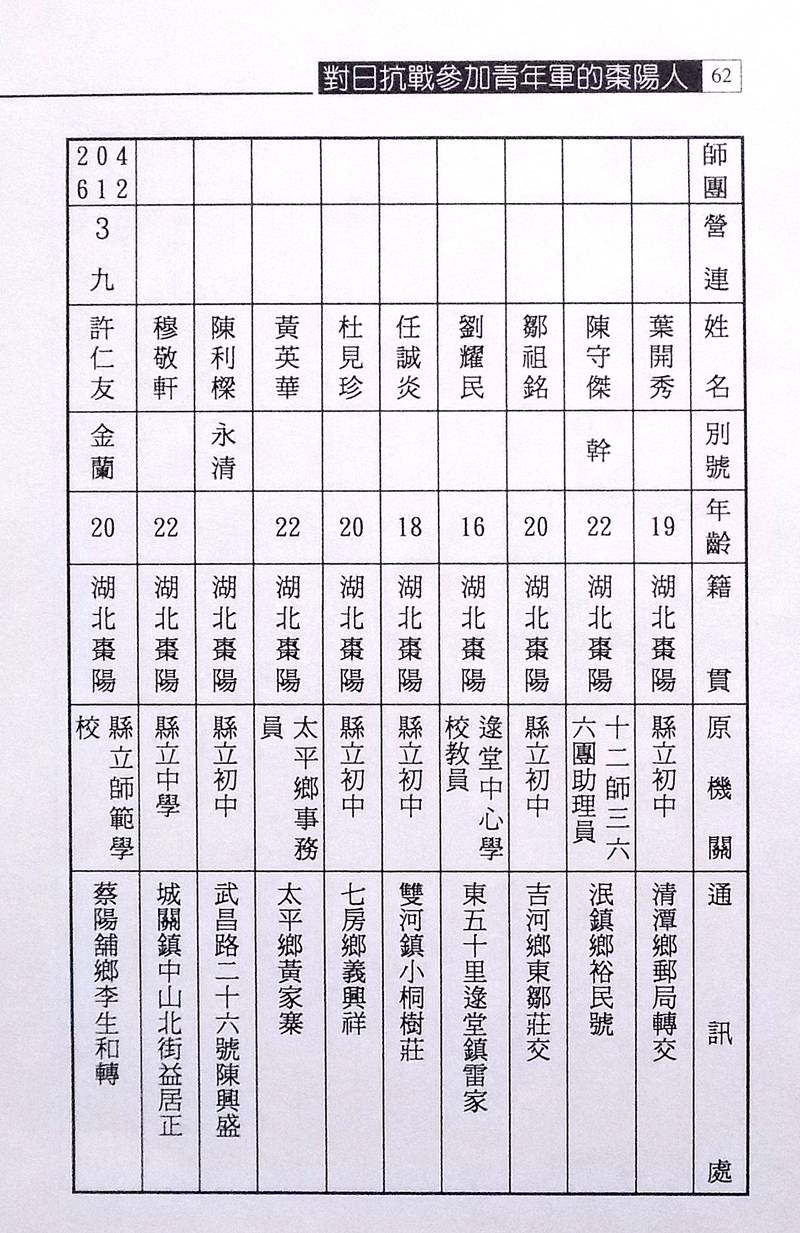 對日抗戰參加青年軍的棗陽人 62
師團 營連 姓名 別號 年齡 籍貫 原機關 通訊處
葉開秀 19 湖北棗陽 縣立初中 清潭鄉郵局轉交
陳守傑 幹 22 湖北棗陽 十二師三六六團助理員 泯鎮鄉裕民號
鄒祖銘 20 湖北棗陽 縣立初中 吉河鄉東鄒莊交
劉耀民 16 湖北棗陽 逯堂中心學校教員 東五十里逯堂鎮雷家
任誠炎 18 湖北棗陽 縣立初中 雙河鎮小桐樹莊
杜見珍 20 湖北棗陽 縣立初中 七房鄉義興祥
黃英華 22 湖北棗陽 太平鄉事務員 太平鄉黃家寨
陳利樑 永清 湖北棗陽 縣立初中 武昌路二十六號陳興盛
穆敬軒 22 湖北棗陽 縣立中學 城關鎮中山北街益居正
204 612 3 九 許仁友 金蘭 20 湖北棗陽 縣立師範學校 蔡陽舖鄉李生和轉